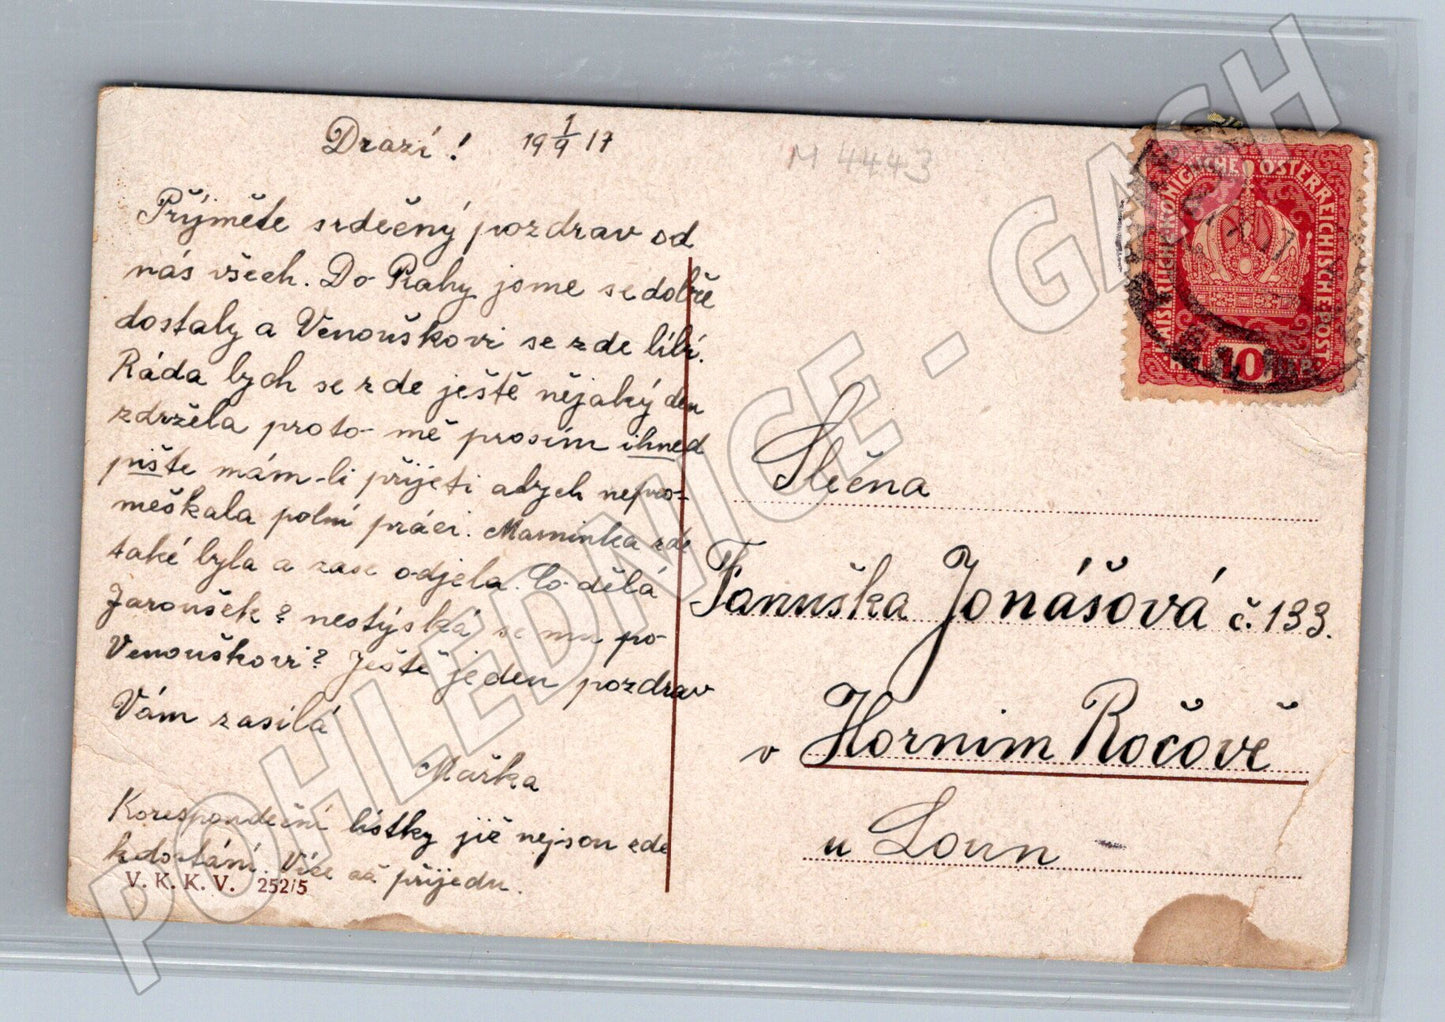 Drazí! 19 1/9 17
M 4443
Příjměte srdečný pozdrav od
nás všech. Do Prahy jsme se dobře
dostaly a Venouškovi se zde líbí.
Ráda bych se zde ještě nějaký den
zdržela proto mě prosím ihned
pište mám-li přijeti abych nepro-
meškala polní práci. Maminka zde
také byla a zase odjela. Co dělá
Jaroušek? nestýská se mu po
Venouškovi? Ještě jeden pozdrav
Vám zasílá
Mařka
Korespondenční lístky již nejsou zde
k dostání. Více až přijedu.
V. K. K. V. 252/5
KAISERLICHE KÖNIGLICHE ÖSTERREICHISCHE POST
10
Slečna
Fanuška Jonášová č. 133.
v Horním Ročově
u Loun
POHLEDNICE - GASH